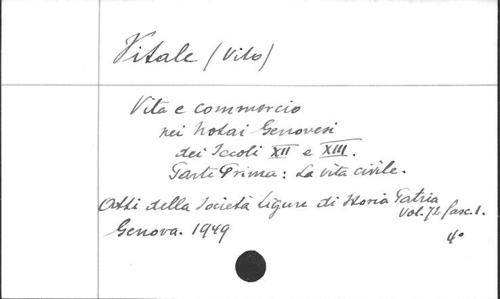 Vitale (Vito)
Vita e commercio
nei Notai Genovesi
dei Secoli XII e XIII.
Parte Prima: La vita civile.
Atti della Società Ligure di Storia Patria
Vol. 72 fasc. 1.
Genova. 1949
4°